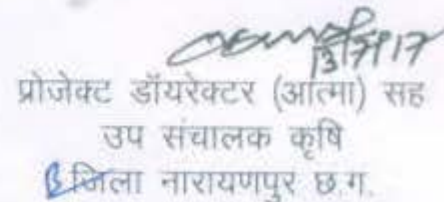 13/7/17
प्रोजेक्ट डॉयरेक्टर (आत्मा) सह
उप संचालक कृषि
जिला नारायणपुर छ.ग.